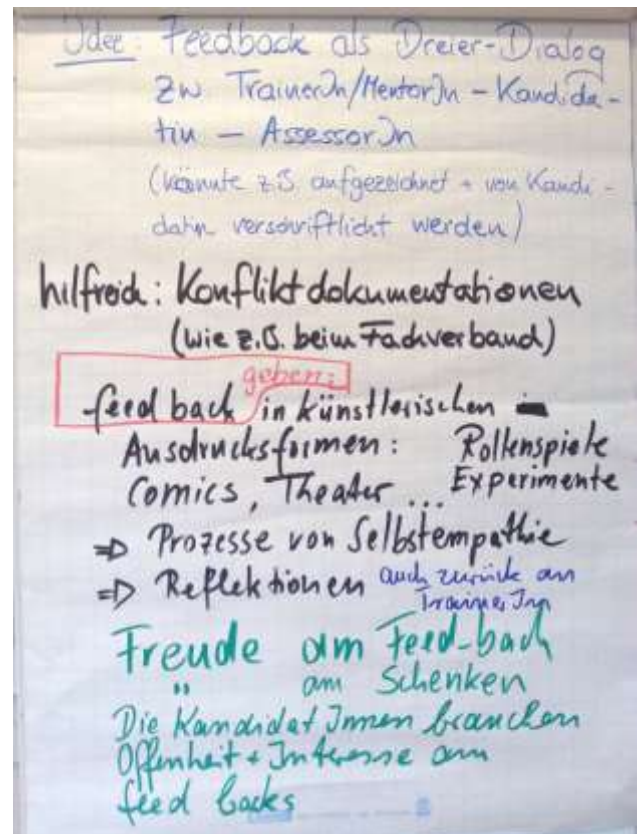 Idee: Feedback als Dreier-Dialog
zw TrainerIn/MentorIn – Kandida-
tin – AssessorIn
(könnte z.B. aufgezeichnet + von Kandi-
datin verschriftlicht werden)
hilfreich: Konfliktdokumentationen
(wie z.B. beim Fachverband)
geben:
feedback in künstlerischen
Ausdrucksformen: Rollenspiele
Comics, Theater ... Experimente
⇒ Prozesse von Selbstempathie
⇒ Reflektionen auch zurück an
TrainerIn
Freude am Feed-back
" am Schenken
Die KandidatInnen brauchen
Offenheit + Interesse am
feed backs